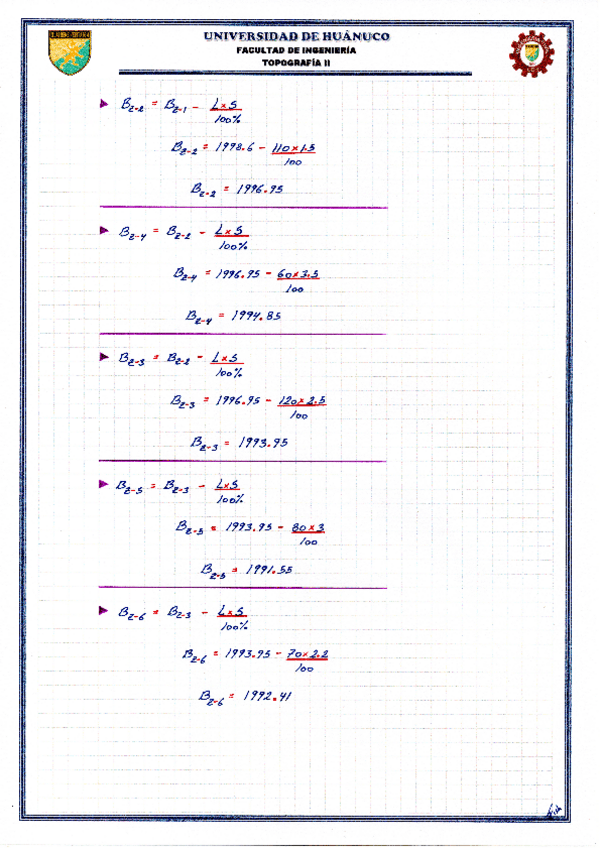 UNIVERSIDAD DE HUÁNUCO
FACULTAD DE INGENIERÍA
TOPOGRAFÍA II
Bz-2 = Bz-1 - L×S/100%
Bz-2 = 1998.6 - 110×1.5/100
Bz-2 = 1996.95
Bz-4 = Bz-2 - L×S/100%
Bz-4 = 1996.95 - 60×3.5/100
Bz-4 = 1994.85
Bz-3 = Bz-2 - L×S/100%
Bz-3 = 1996.95 - 120×2.5/100
Bz-3 = 1993.95
Bz-5 = Bz-3 - L×S/100%
Bz-5 = 1993.95 - 80×3/100
Bz-5 = 1991.55
Bz-6 = Bz-3 - L×S/100%
Bz-6 = 1993.95 - 70×2.2/100
Bz-6 = 1992.41